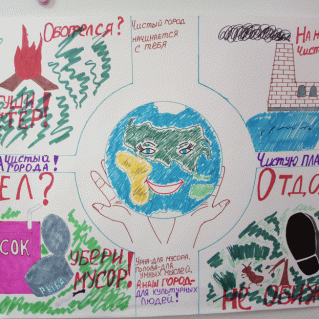 Обогрелся?
Чистый город
начинается
с тебя
На на
Чисты
КОСТЁР!
Чистота
города!
Чистую пла
ЕЛ?
Отдо
СОК
РЫБА
УБЕРИ
МУСОР!
Урна-для мусора,
голова-для
умных мыслей,
А наш город-
для культурных
людей!
НЕ ОБИЖ